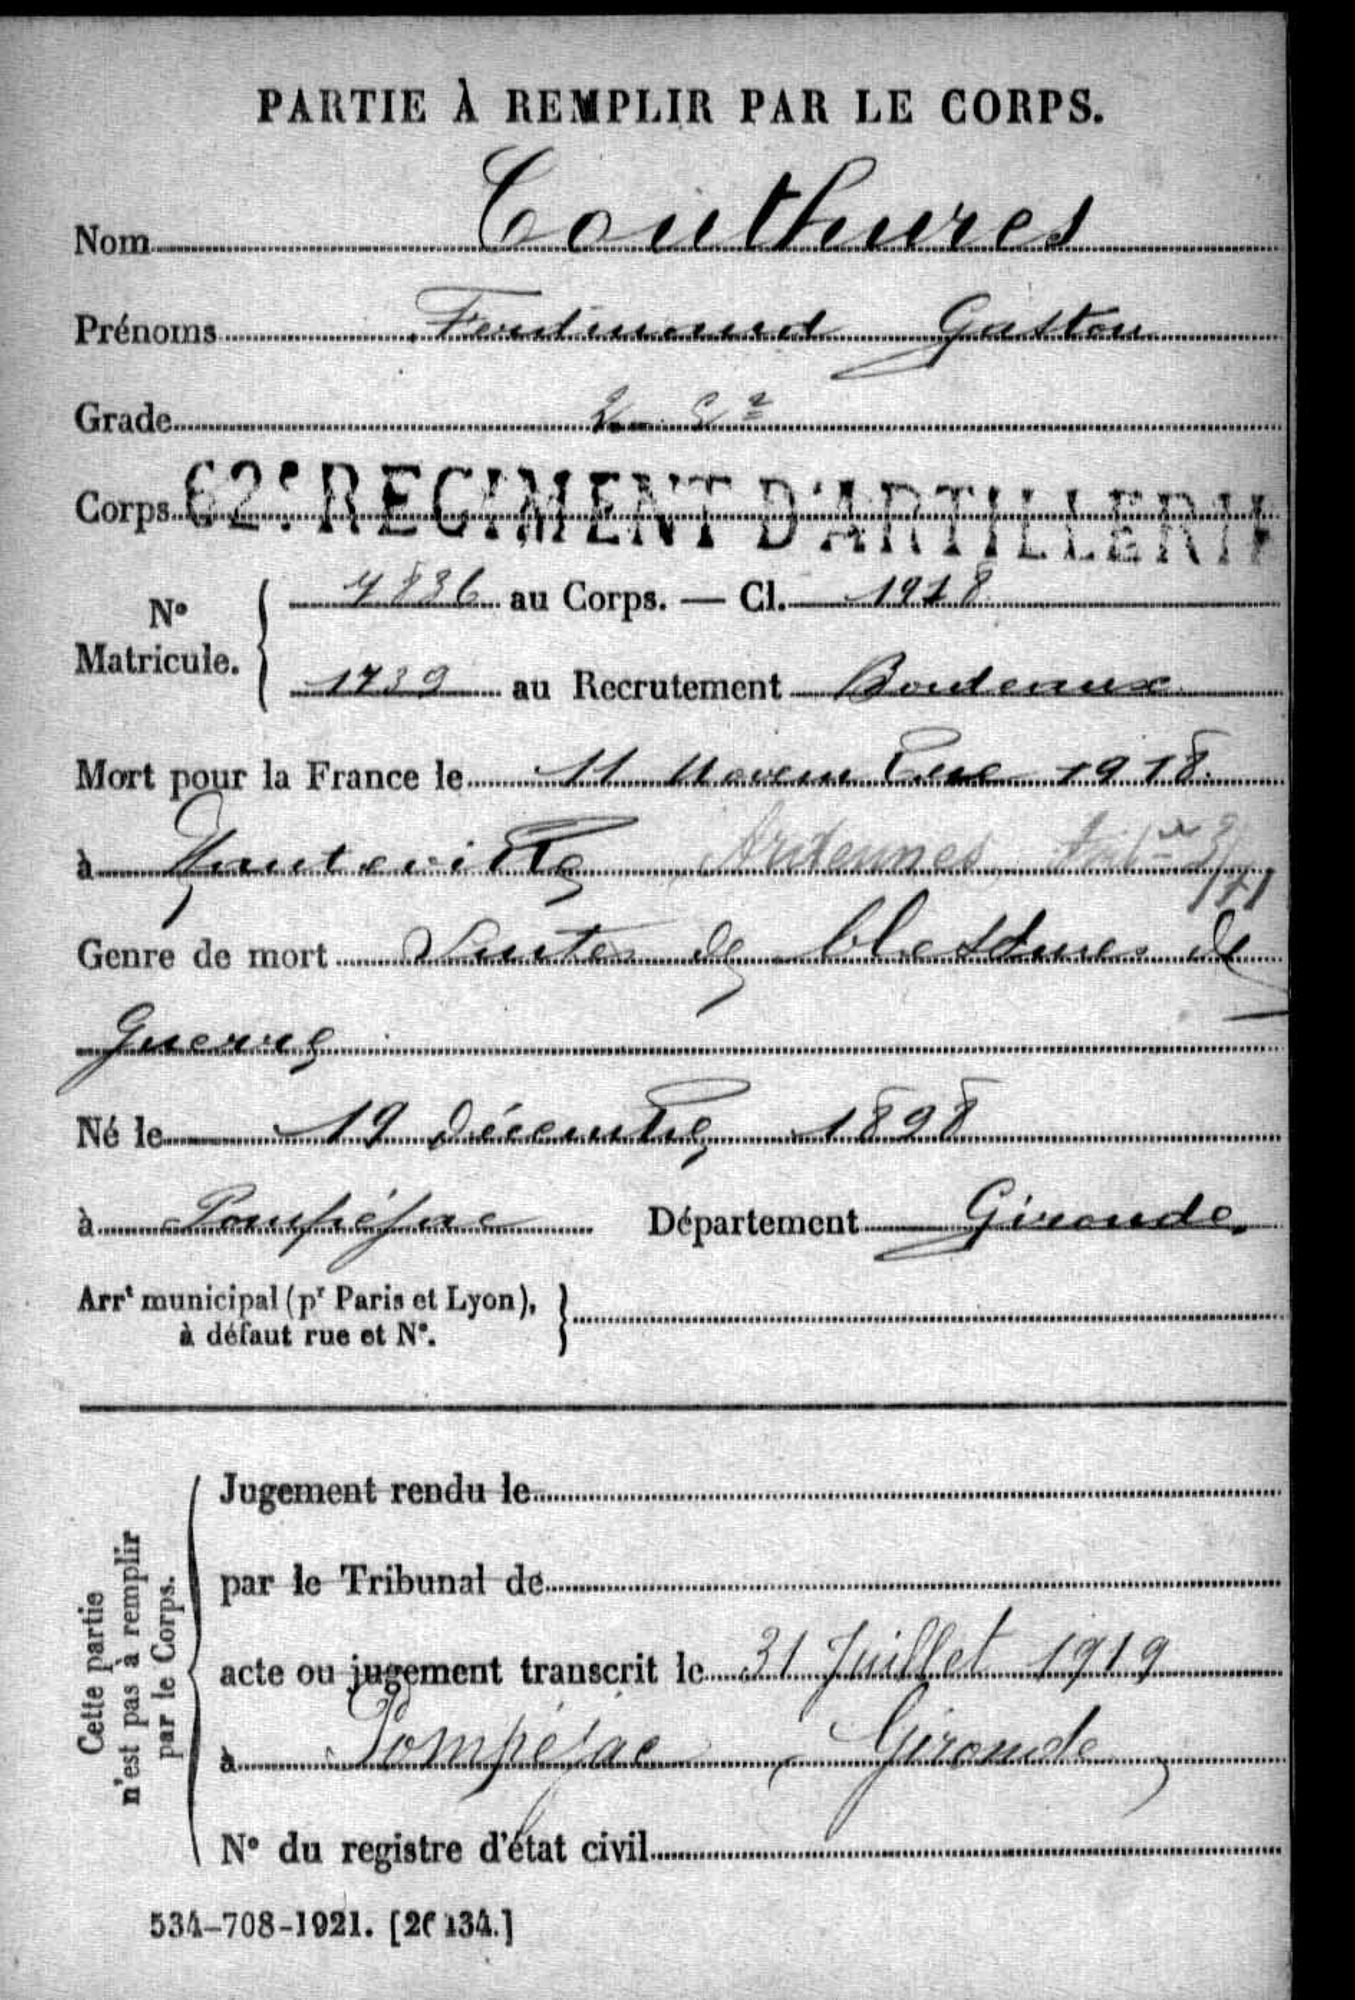 PARTIE À REMPLIR PAR LE CORPS.
Nom Couthures
Prénoms Ferdinand Gaston
Grade 2e Cr
Corps 62e REGIMENT D'ARTILLERIE
N° Matricule. 4836 au Corps. — Cl. 1918
1739 au Recrutement Bordeaux
Mort pour la France le 11 Novembre 1918
à Hauteville Ardennes
Genre de mort Suites de blessures de
Guerre
Né le 19 Décembre 1898
à Pompéjac Département Gironde.
Arrt municipal (pr Paris et Lyon),
à défaut rue et N°.
Cette partie
n'est pas à remplir
par le Corps.
Jugement rendu le
par le Tribunal de
acte ou jugement transcrit le 31 Juillet 1919
à Pompéjac, Gironde
N° du registre d'état civil
534-708-1921. [26134.]